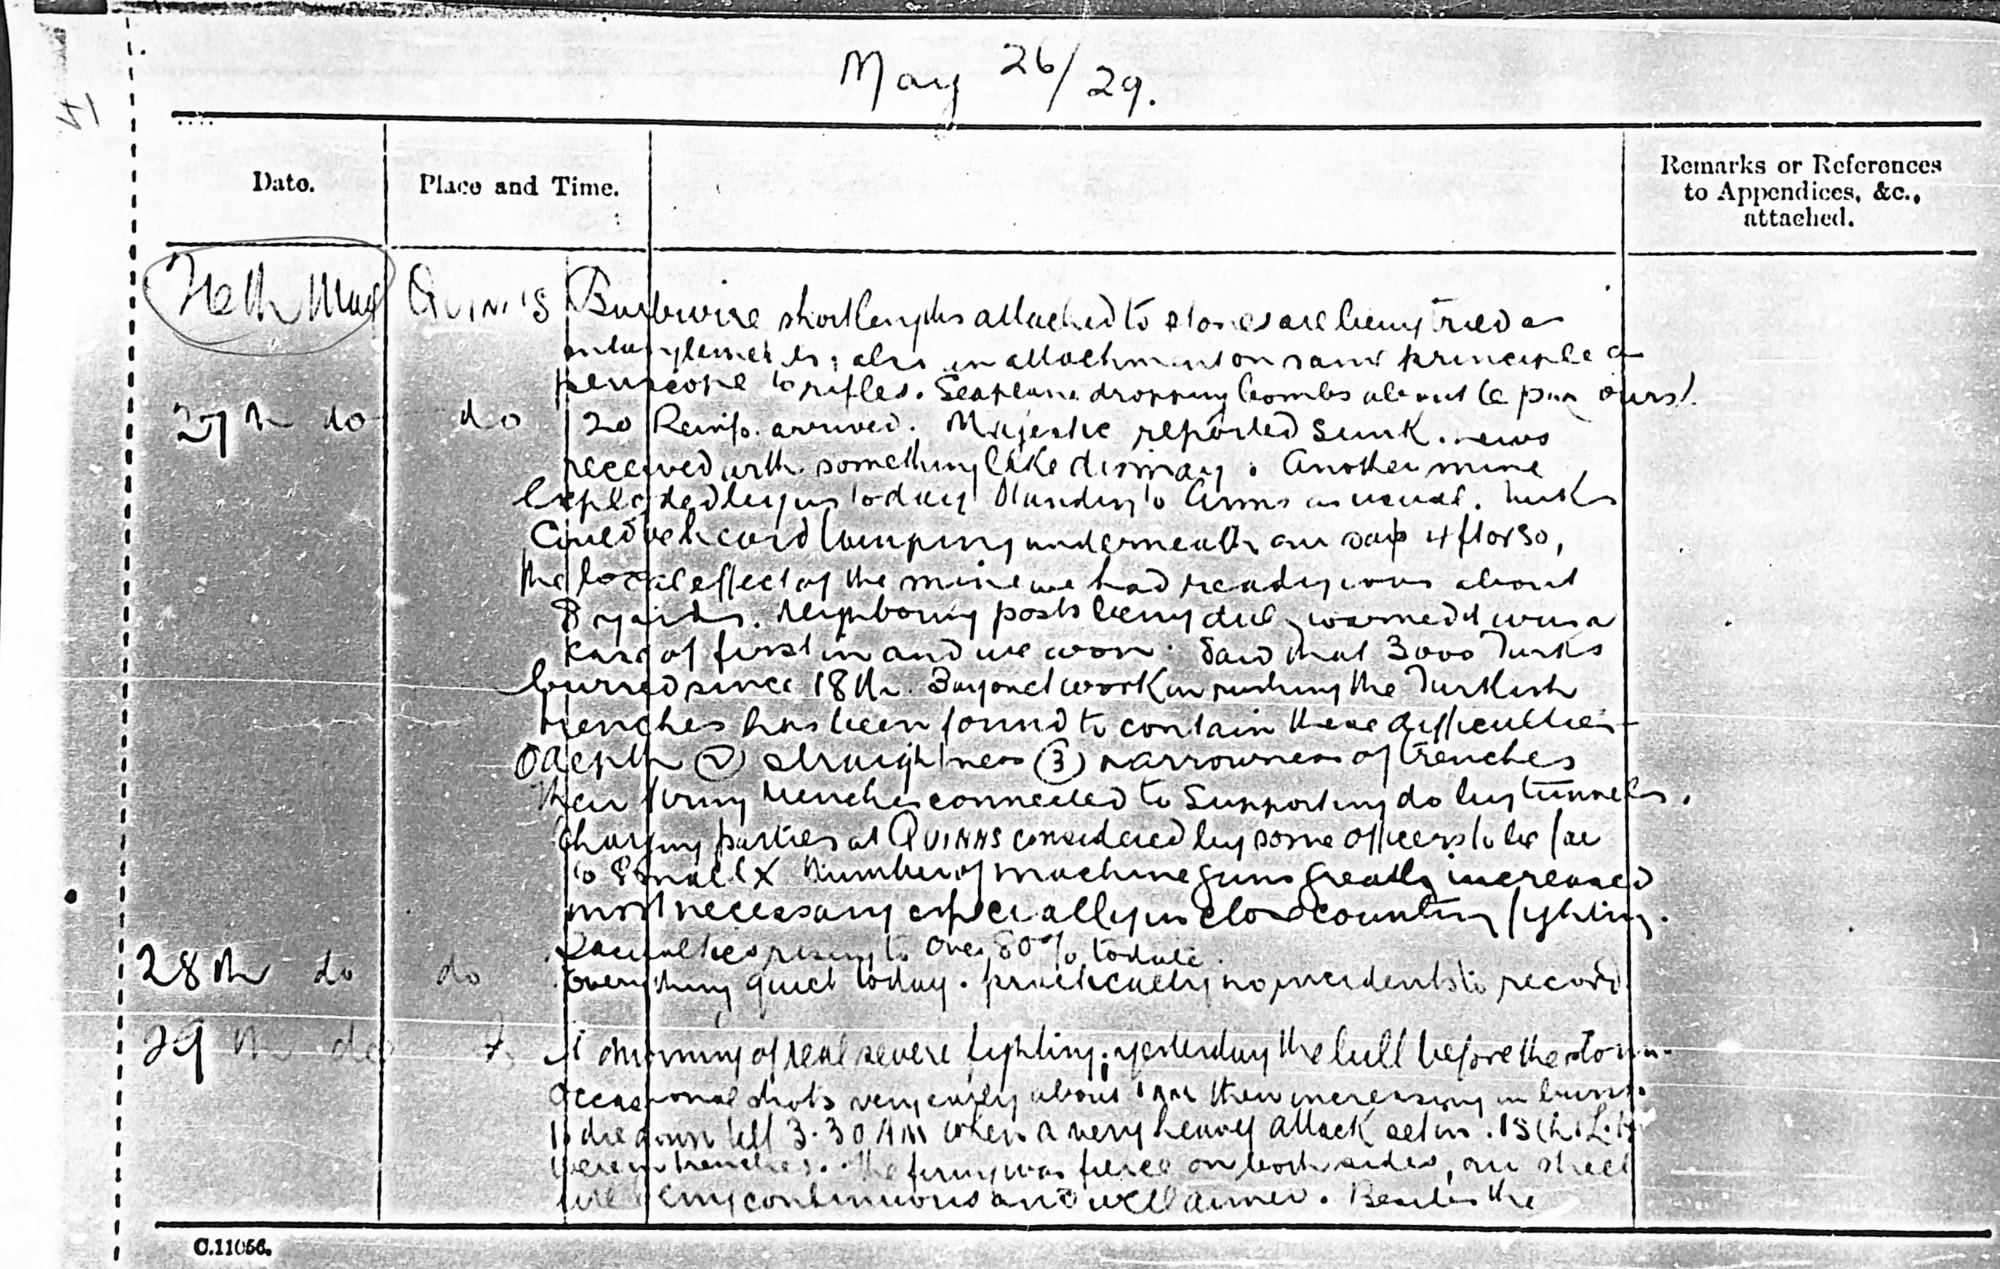 May 26/29.
Date.
Place and Time.
Remarks or References
to Appendices, &c.,
attached.
26th May Quinn's Barbwire short lengths attached to stones are being tried as
entanglements; also an attachment on same principle as
periscope to rifles. Seaplane dropping bombs about 6 pm ours.
27th do do 20 Reinfo. arrived. Majestic reported sunk. news
received with something like dismay. Another mine
exploded by us today Standing to Arms as usual. Turks
could be heard tamping underneath our sap 4 ft or so,
the local effect of the mine we had ready was about
8 yards. Neighboring posts being duly warned it was a
case of first in and we won. Said that 3000 Turks
burried since 18th. Bayonet work in rushing the Turkish
trenches has been found to contain these difficulties
① depth ② straightness ③ narrowness of trenches
their firing trenches connected to supporting do by tunnels.
Charging parties at QUINNS considered by some officers to be far
to small X Number of machine guns greatly increased
most necessary especially in close country fighting.
Casualties rising to over 80% to date.
28th do do Everything quiet today. practically no incidents to record
29th do do A morning of real severe fighting; yesterday the lull before the storm.
Occasional shots very early about 1 AM then increasing in
to die down till 3.30 AM when a very heavy attack set in. 15th L.H
were in trenches. The firing was fierce on both sides, our
fire being continuous and well aimed. Besides the
C.11056.
4